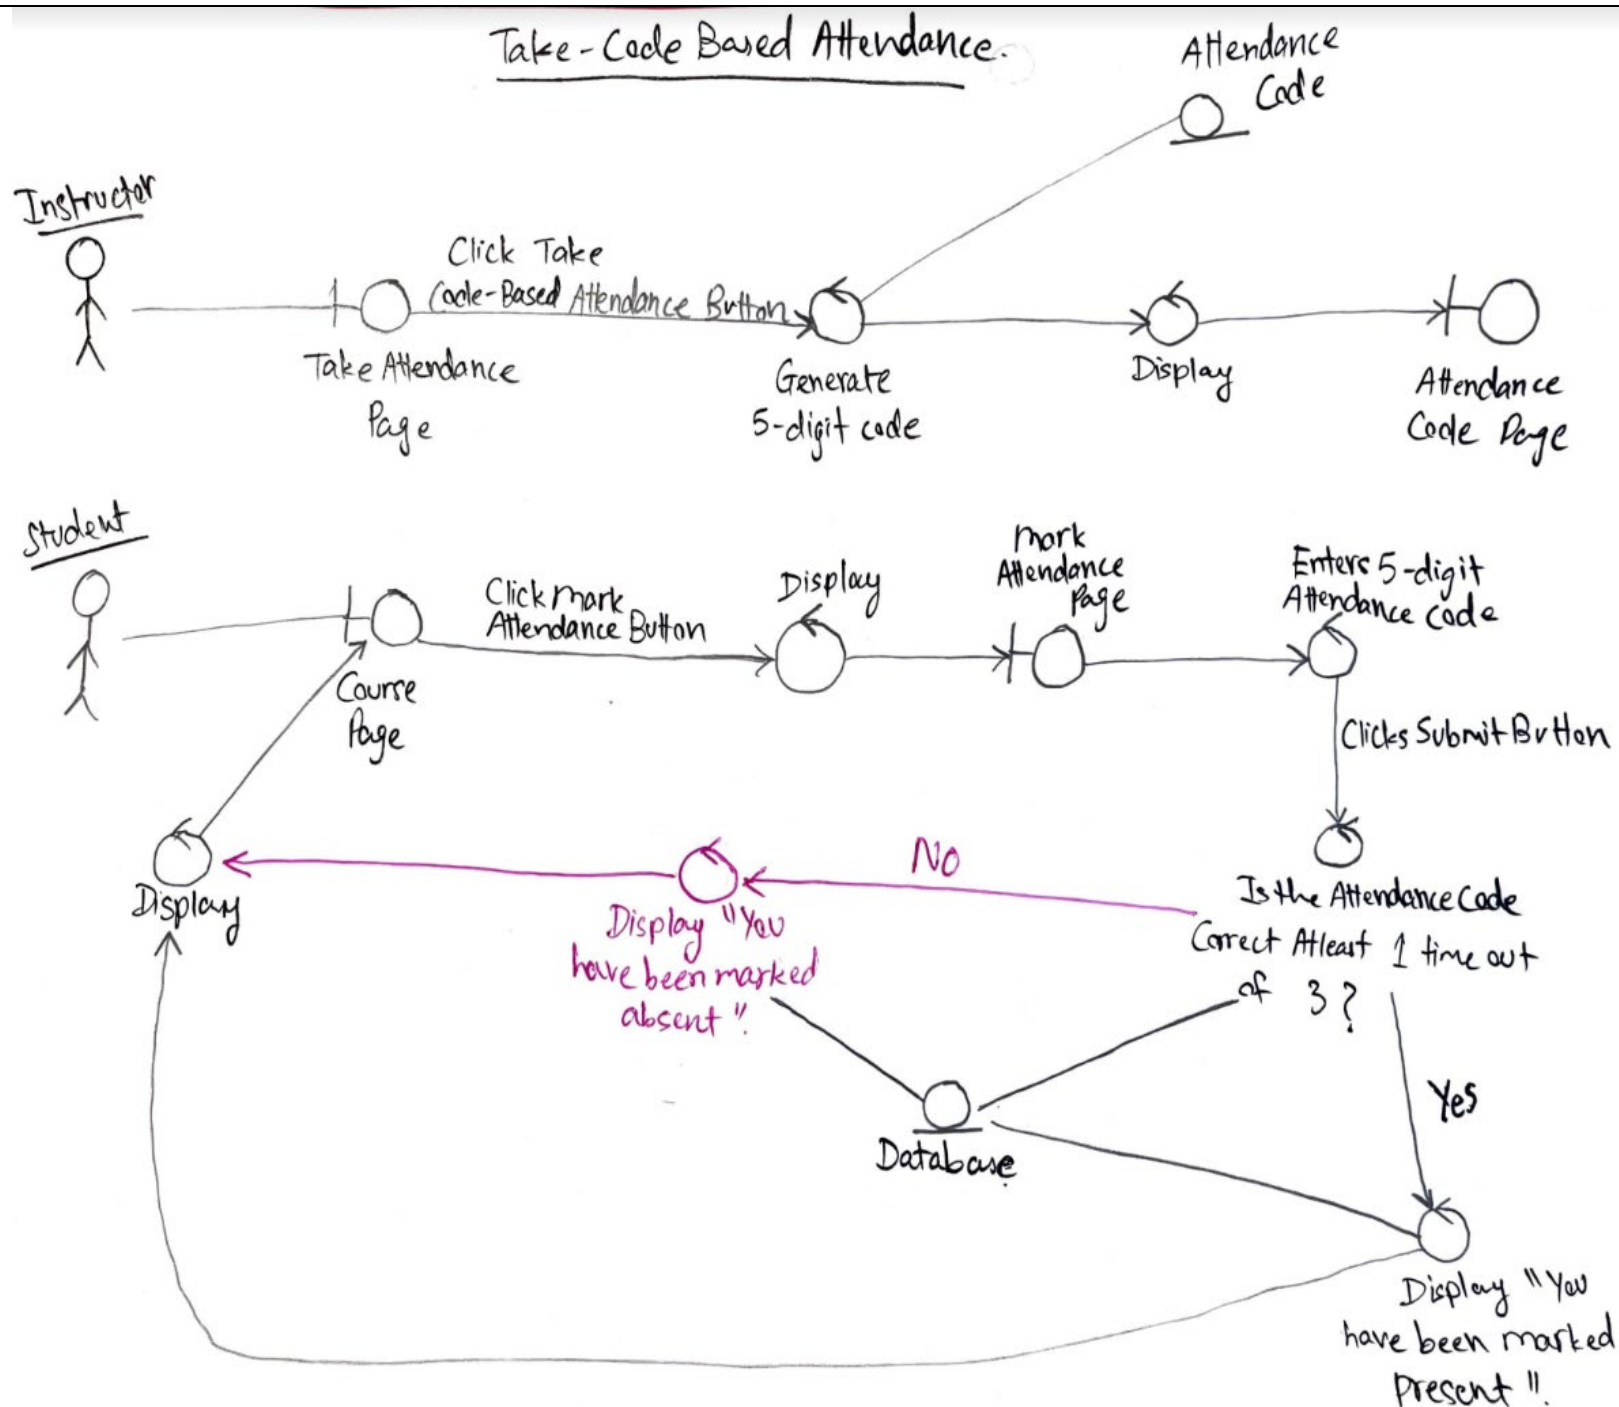 Take-Code Based Attendance.
Attendance
Code
Instructor
Click Take
Code-Based Attendance Button
Take Attendance
Page
Generate
5-digit code
Display
Attendance
Code Page
Student
Click Mark
Attendance Button
Course
Page
Display
Mark
Attendance
Page
Enters 5-digit
Attendance Code
Clicks Submit Button
Is the Attendance Code
Correct Atleast 1 time out
of 3?
No
Display "You
have been marked
absent".
Display
Database
Yes
Display "You
have been marked
Present".